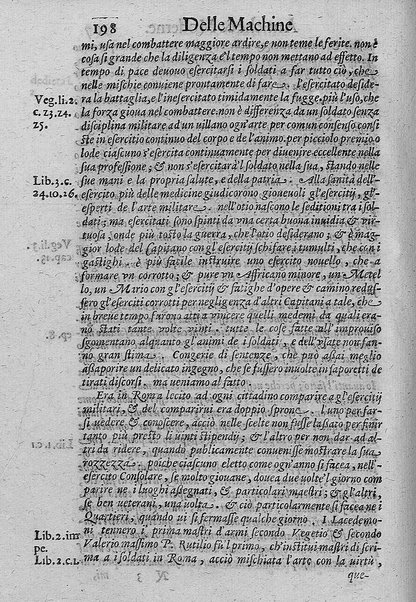 198 Delle Machine
mi, usa nel combattere maggiore ardire, e non teme le ferite. non è
cosa sì grande che la diligenza e'l tempo non mettano ad effetto. In
tempo di pace deuono esercitarsi i soldati a far tutto ciò, che
nelle mischie conuiene prontamente di fare. l'esercitato deside-
Veg. li. 2.
ra la battaglia, e l'inesercitato timidamente la fugge. più l'uso, che
c. 23. 24.
la forza gioua nel combattere. non è differenza da un soldato senza
25.
disciplina militare ad un uillano. ogn'arte per comun consenso consi
ste in esercitio continuo del corpo e de l'animo. per picciolo premio o
lode ciascuno s'esercita continuamente per diuenire eccellente nella
sua professione; & non s'esercitarà l'soldato nella sua, stando nelle
Lib. 3. c.
sue mani e la propria salute, e della patria. Alla sanità dell'
24. 10. 26.
esercito più delle medicine giudicorono gioueuoli gl'esercitij, gl'
esperti de l'arte militare. nell'otio nascono le seditioni tra i sol-
dati; ma esercitati sono spinti da una certa buona inuidia & vir-
tuosa, onde più tosto la guerra, che l'otio desiderano; & è mag-
gior lode del Capitano con gl'esercitij schifare i tumulti, che con i
gastighi. è più facile instruire uno esercito nouello, che ri-
formare vn corrotto; & pure vn Affricano minore, un Metel
lo, un Mario con gl'esercitij & fatighe d'opere & camino redus-
sero gl'eserciti corrotti per negligenza d'altri Capitani a tale, che
in breue tempo furono atti a vincere quelli medemi da quali era-
no stati tante volte vinti. tutte le cose fatte all'improuiso
sgomentano alquanto gl'animi de i soldati, e dell'usate non fan-
no gran stima. Congerie di sentenze, che può assai meglio
assaporire un delicato ingegno, che se fussero inuolte in saporetti de
tirati discorsi. ma ueniamo al fatto.
Era in Roma lecito ad ogni cittadino comparire a gl'esercitij
militari, & del comparirui era doppio sprone. l'uno per far-
si uedere & conoscere, acciò nelle scelte non fusse lasciato per finir
tanto più presto li uinti stipendij; & l'altro per non dar ad al-
tri da ridere, quando publicamente conuenisse mostrare la sua
Lib. 1. c. 1.
rozzezza. poiche ciascuno eletto come ogn'anno si facea, nell'e-
sercito Consolare, se molto giouane, douea due volte l giorno com
parire ne i luoghi assegnati, & particolari maestri; & gl'altri,
se ben ueterani, una volta. & ciò particolarmente si facea ne i
Quartieri, quando ui si fermasse qualche giorno. I Lacedemo-
ni tennero i prima mastri d'armi secondo Vegetio & secondo
Lib. 2. in
pe.
Valerio massimo P. Rutilio fu'l primo, ch'instituì mastri di scri-
Lib. 2. c. 1.
ma a i soldati in Roma, acciò mischiata l'arte con la virtù,
que-